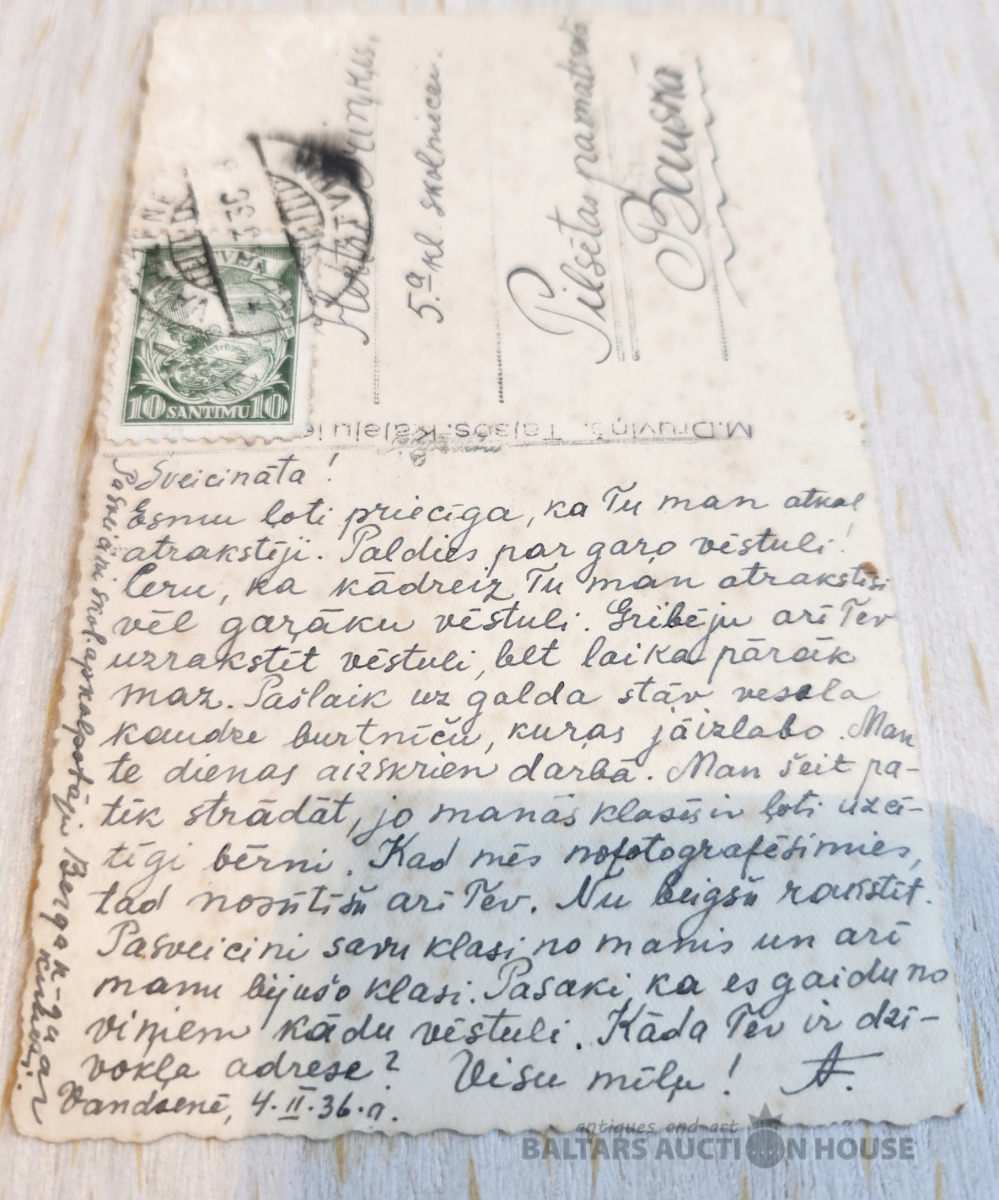 Sveicināta!
Esmu ļoti priecīga, ka Tu man atkal
atrakstīji. Paldies par garo vēstuli!
Ceru, ka kādreiz Tu man atrakstīsi
vēl garāku vēstuli. Gribēju arī Tev
uzrakstīt vēstuli, bet laika pārāk
maz. Pašlaik uz galda stāv vesela
kaudze burtnīču, kuras jāizlabo. Man
te dienas aizskrien darbā. Man šeit pa-
tīk strādāt, jo manās klasēs ir ļoti uzcī-
tīgi bērni. Kad mēs nofotografēsimies,
tad nosūtīšu arī Tev. Nu beigšu rakstīt.
Pasveicini savu klasi no manis un arī
manu bijušo klasi. Pasaki ka es gaidu no
viņiem kādu vēstuli. Kāda Tev ir dzī-
vokļa adrese? Visu mīļu! A.
Vandzenē, 4.II.36.g.
Pasveicini skol. apkalpotāju
5.ª kl. skolnicei.
Pilsētas pamatskolā
Bauskā
M.Druviņš, Talsos.
LATVIJA
10 SANTIMU 10
antiques and art
BALTARS AUCTION HOUSE